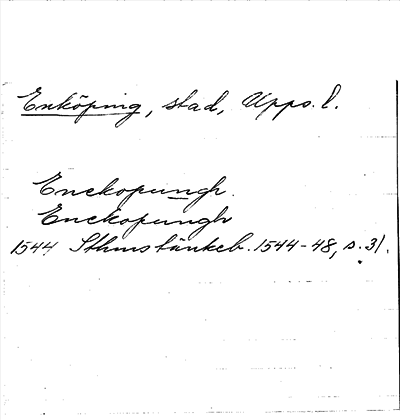 Enköping, stad, Upps. l.
Enekopungh.
Enekopungh
1544 Sthms tänkeb. 1544-48, s. 31.